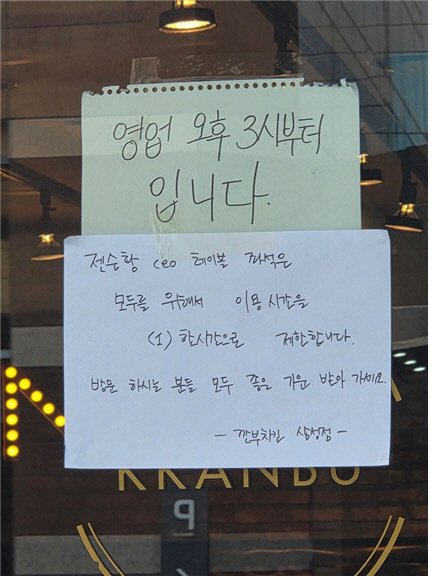 영업 오후 3시부터
입니다.
젠슨황 CEO 테이블 좌석은
모두를 위해서 이용시간을
(1) 한시간으로 제한합니다.
방문 하시는 분들 모두 좋은 기운 받아 가세요.
- 깐부치킨 삼성점 -
KKANBU